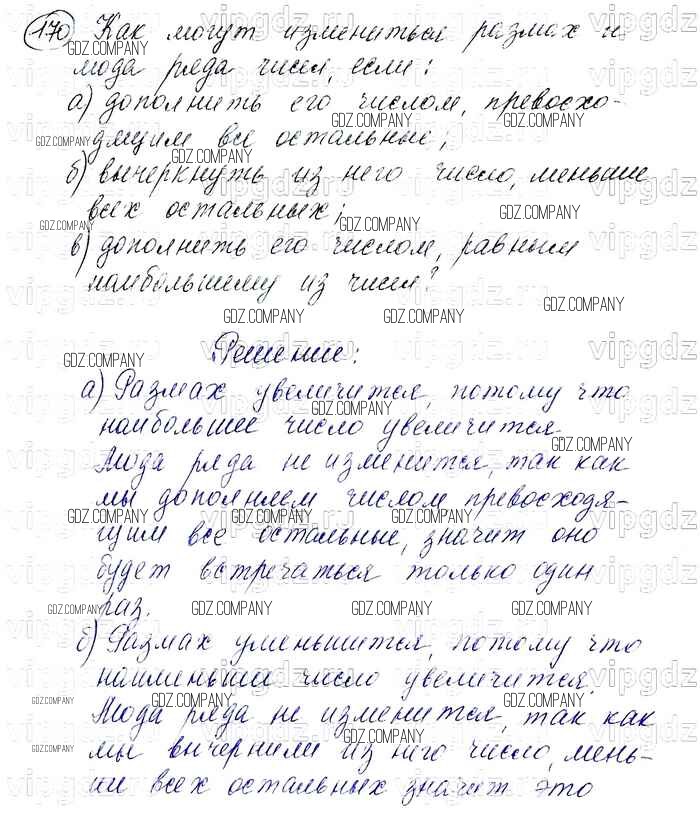 170 Как могут измениться размах и
мода ряда чисел, если:
а) дополнить его числом, превосхо-
дящим все остальные;
б) вычеркнуть из него число, меньше
всех остальных;
в) дополнить его числом, равным
наибольшему из чисел?
Решение:
а) Размах увеличится, потому что
наибольшее число увеличится.
Мода ряда не изменится, так как
мы дополняем числом превосходя-
щим все остальные, значит оно
будет встречаться только один
раз.
б) Размах уменьшится, потому что
наименьши число увеличится.
Мода ряда не изменится, так как
мы вычернили из него число, мень-
ши всех остальных значит это
GDZ.COMPANY
vipgdz.ru